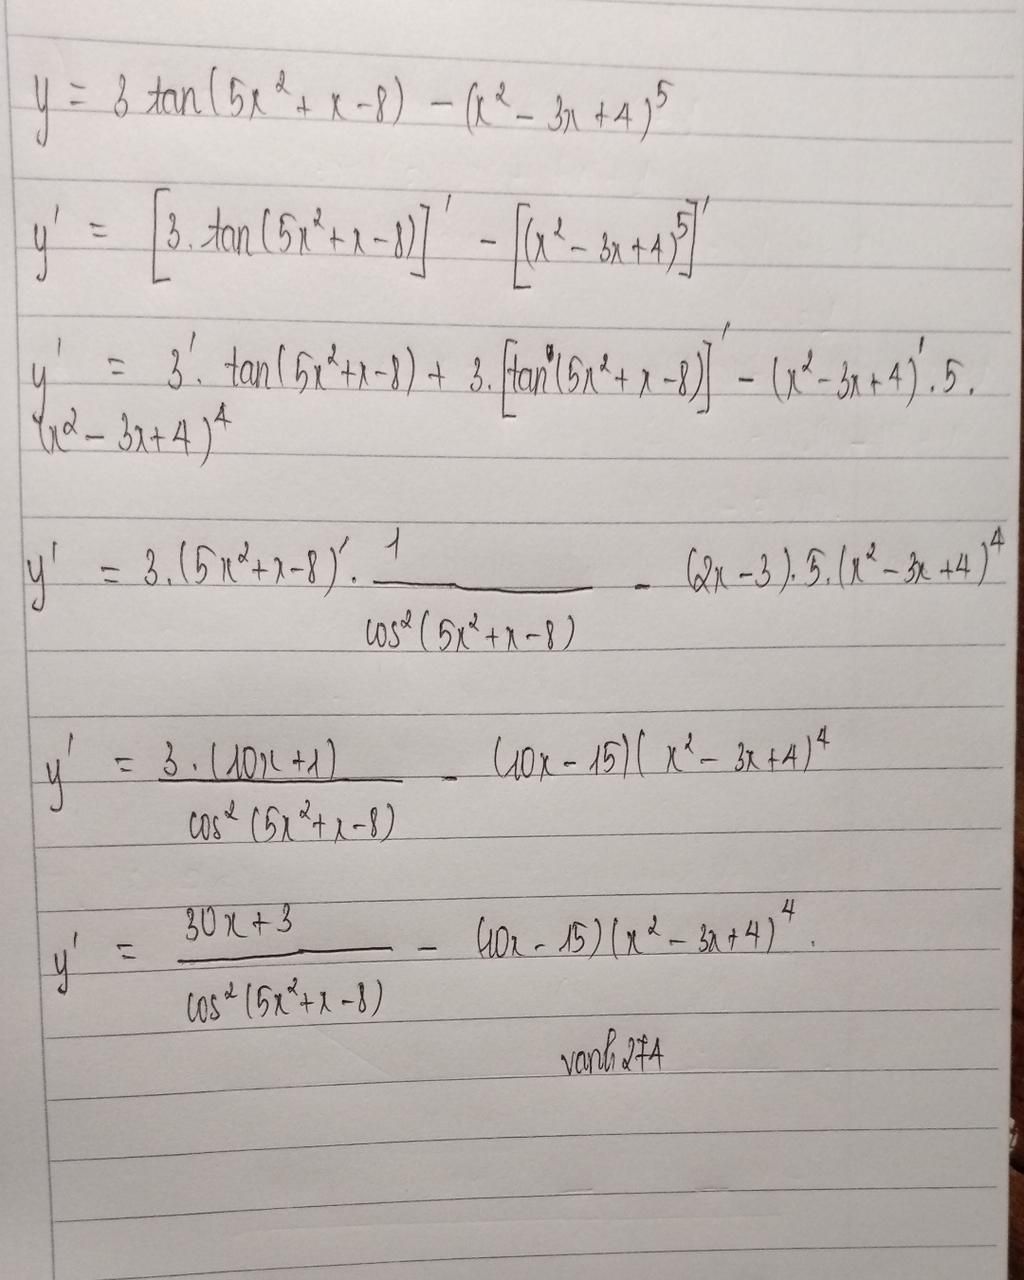 y = 3 tan(5x² + x - 8) - (x² - 3x + 4)⁵
y' = [3. tan(5x² + x - 8)]' - [(x² - 3x + 4)⁵]'
y' = 3'. tan(5x² + x - 8) + 3. [tan(5x² + x - 8)]' - (x² - 3x + 4)'. 5.
(x² - 3x + 4)⁴
y' = 3. (5x² + x - 8)'. 1/cos²(5x² + x - 8) - (2x - 3). 5. (x² - 3x + 4)⁴
y' = 3. (10x + 1)/cos²(5x² + x - 8) - (10x - 15)(x² - 3x + 4)⁴
y' = 30x + 3/cos²(5x² + x - 8) - (10x - 15)(x² - 3x + 4)⁴.
vanh274